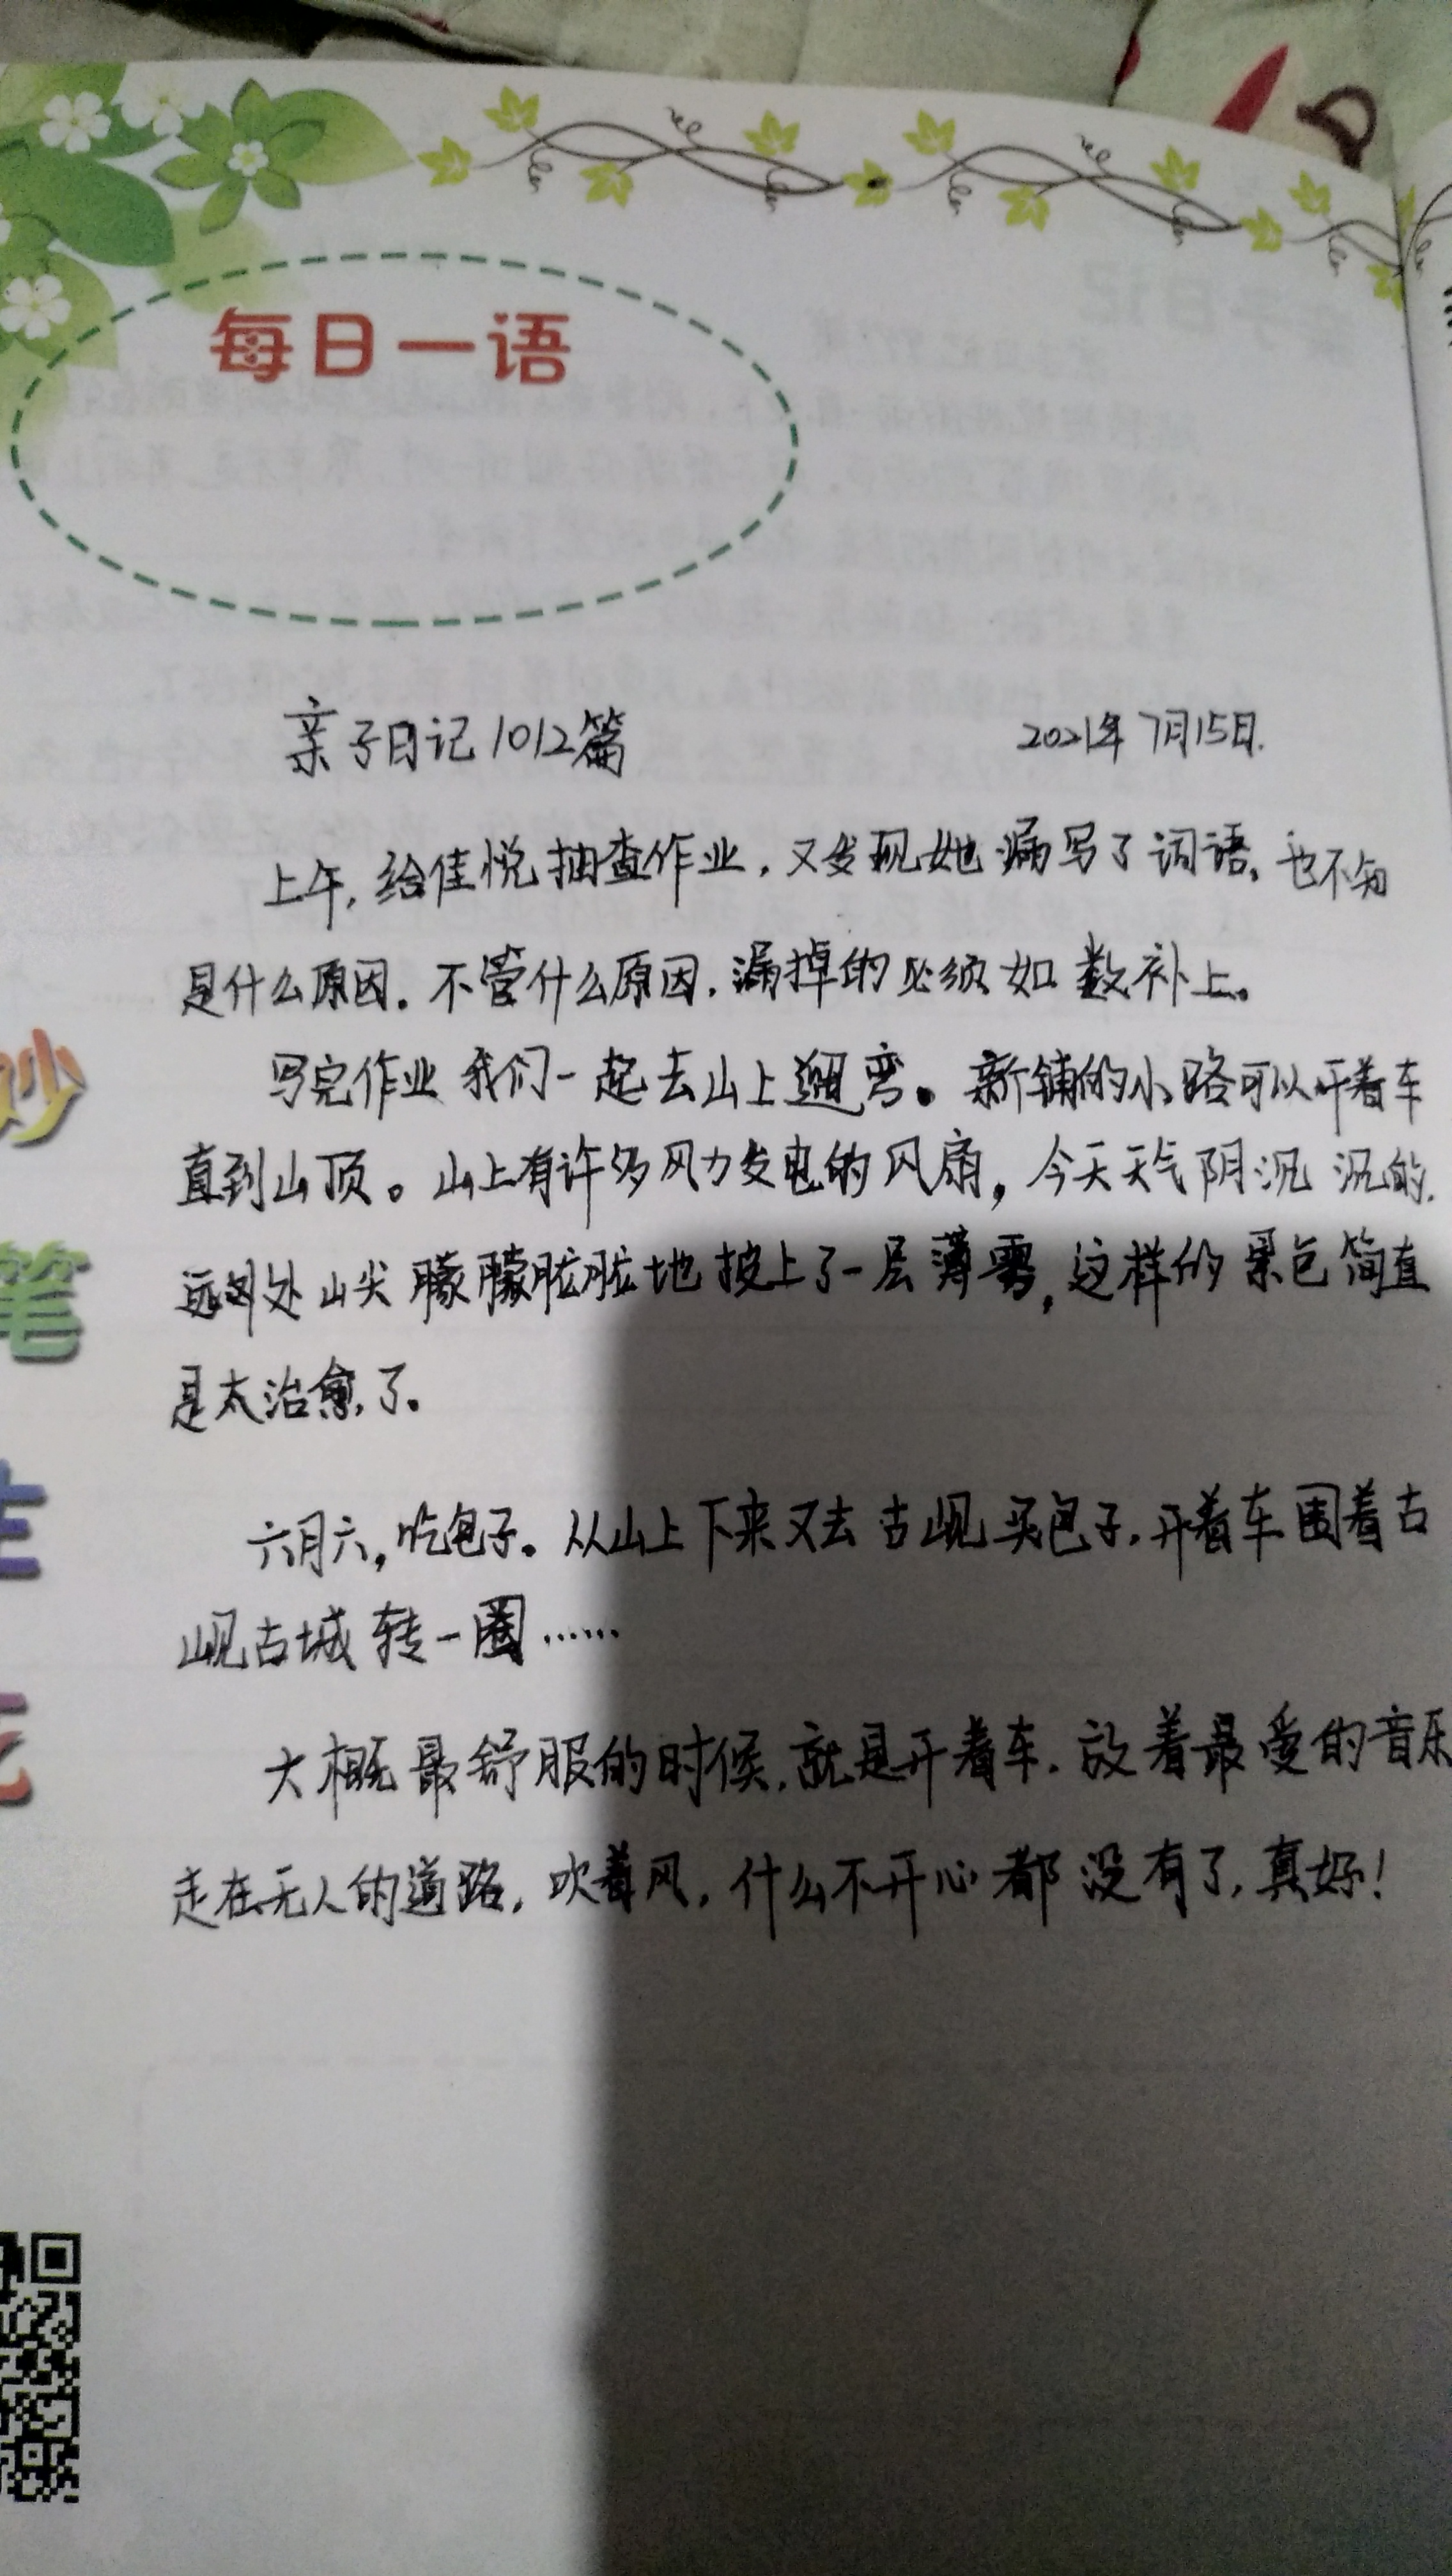 每日一语
亲子日记1012篇 2021年7月15日.
上午,给佳悦抽查作业,又发现她漏写了词语,也不知
是什么原因。不管什么原因,漏掉的必须如数补上。
写完作业我们一起去山上遛弯。新铺的小路可以开着车
直到山顶。山上有许多风力发电的风扇,今天天气阴沉沉的,
远处山尖朦朦胧胧地披上了一层薄雾,这样的景色简直
是太治愈了。
六月六,吃包子。从山上下来又去古岘买包子,开着车围着古
岘古城转一圈……
大概最舒服的时候,就是开着车,放着最爱的音乐
走在无人的道路,吹着风,什么不开心都没有了,真好!
妙
笔
生
花